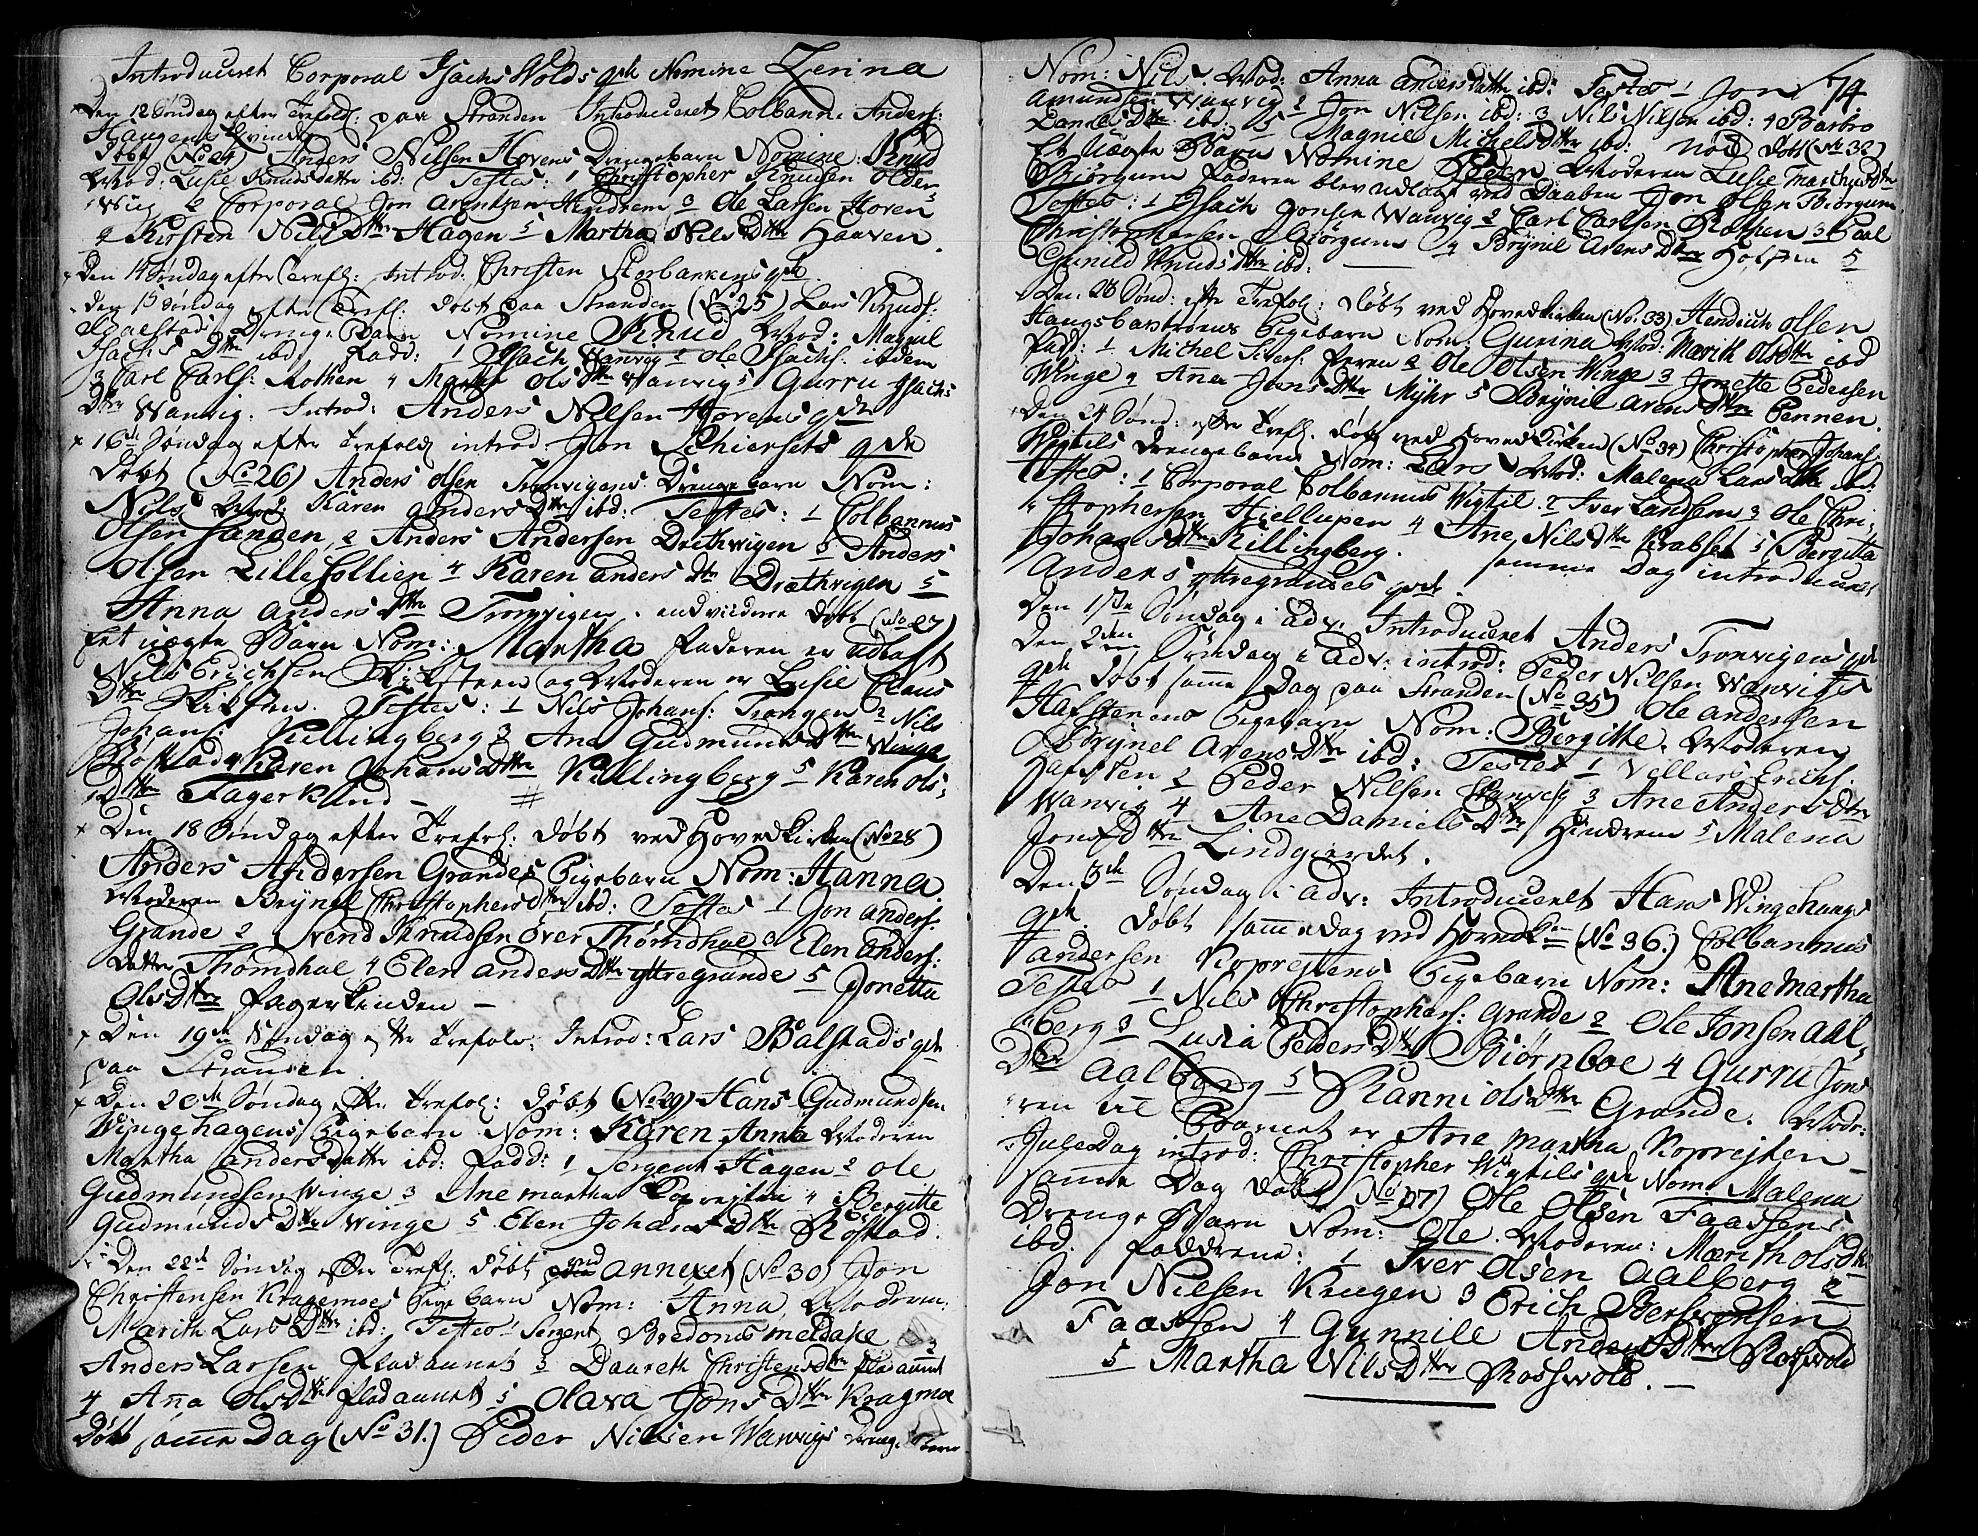 Introduceret Corporal Isachs Volds qde Nomine Zerina
Den 12 Søndag efter Trefold: paa Stranden Introduceret Colbanni Anders:
Haugens Qvinde
Døbt (No 24) Anders Nilsen Hovens Drengebarn Nomine: Knud
Mod: Lusie Knudsdatter ibd: Testes: 1 Christopher Knudsen Older
wiig 2 Corporal Jon Arentzen Hindrem 3 Ole Larsen Hoven
4 Kirsten Nils Dtter Hagen 5 Martha Nils Dtter Haaven.
Den 14 Søndag efter Trefl: Introd. Christen Storbakkens qde
den 15 Søndag efter Trefl: døbt paa Stranden (No 25) Lars Knuds:
Drenge Barn Nomine Knud Mod: Magnil
Isachs Dtter ibd. Fadd: 1 Isach Wanvig 2 Ole Isachs. ibdem
3 Carl Carls: Rothen 4 Ols Dtter Wanvig 5 Gurru Isachs
Dtter Wanvig. Introd: Anders Nilsen Hovens qde
16de Søndag efter Trefold introd. Jon Schiersets qde
Døbt (No 26) Anders Olsen Tronvigens Drengebarn Nom:
Nils Mod: Karen Anders Dtter ibd: Testes: 1 Colbannus
Olsen Sanden, 2 Anders Andersen Drethvigen 3 Anders
Olsen Lille Collien 4 Karen Anders Dtr Dræthvigen 5
Anna Anders Dtter Tronvigen. endvidere døbt (No 27)
Eet uægte Barn Nom: Martha Faderen er udlagt
Nils Erichsen og Moderen er Lusie Claus
Dtter Testes: 1 Nils Johans: Trangen 2 Nils
Johans: Killingberg 3 Ane Gudmunds Dtter Winge
Røstad 4 Karen Johans Dtter Killingberg 5 Karen Ols:
Dtter Fagerlund —
Den 18 Søndag efter Trefol: døbt ved Hoved Kirken (No 28)
Anders Andersen Grandes Pigebarn Nom: Hanna.
Moderen Brynel Christophers Dtter ibd: Testes 1 Jon Anders:
Grande 2 Svend Knudsen over Thørndhal 3 Elen Anders:
datter Thørndhal 4 Elen Anders Dtter yttregrande 5 Jonetta
Ols Dtter Fagerlunden —
Den 19de Søndag efter Trefold: Introd: Lars Balstads qde
paa Stranden
Den 20de Søndag efter Trefol: døbt (No 29) Hans Gudmundsen
Wingehagens Pigebarn Nom: Karen Anna Moderen
Martha Andersdatter ibd: Fadd: 1 Sergent Hagen 2 Ole
Gudmundsen Winge 3 Ane Martha Koprejten 4 Bergitte
Gudmunds Dtter Winge 5 Elen Johans Dtter Røstad.
Den 22de Søndag efter Trefl: døbt ved Annexet (No 30) Jon
Christensen Kragemoes Pigebarn Nom: Anna Moderen:
Marith Lars Dtter ibd: Testes 1 Sergent 2
Anders Larsen Fladaunet 3 Daareth Christens Dtter Fladaunet
4 Anna Ols Dtr Fladaunet 5 Olava Jons Dtter Kragmo
Døbt samme Dag (No 31.) Peder Nilsen Wanvigs Drengebarn
74.
Nom: Nils Mod: Anna Andersdatter ibd: Testes 1 Jon
Amundsen Wanvig 2 Jon Nilsen ibd: 3 Nils Nilsen ibd: 4 Barbro
Daniels Dtter ibd: 5 Magnil Michels Dtter ibd: Nød døbt (No 32)
Et Uægte Barn Nomine Peter Moderen Lusie Marthins Dtter
Biørgum Faderen blev udlagt ved Daaben Jon Olsen Biørgum
Testes: 1 Isach Jonsen Wanvig 2 Carl Carlsen Rothen 3 Paal
Christophersen Biørgum 4 Brynel Arens Dtter 5
Gunild Knuds Dtter ibd: —
Den 23 Sønd: efter Trefol: døbt ved Hovedkirken (No: 33) Hendrich Olsen
Haugsbastrøens Pigebarn Nom: Gurina Mod: Marith Olsdtter ibd
Fad: 1 Michel 2 Ole Olsen Winge 3 Jonette Pedersen
Winge 4 Ana Jons Dtter Myhr 5 Brynel Arens Dtter Pennen.
Den 24 Sønd: efter Trefl. døbt ved Hovedkirken (No 34) Christopher Johans
Wigtils drengebarn Nom: Lars Mod: Malena Larsdatter ibd:
Testes: 1 Corporal Colbannus Wigtil. 2 Iver Landsem 3 Ole Chri-
stophersen Hiellupen 4 Ane Nils Dtter Krabset 5 Bergitta
Johans Dtter Killingberg. Samme Dag introduceret
Anders yttregrandes qde.
Den 1ste Søndag i Adv. Introduceret Anders Tronvigens qde
Den 2den Søndag i Adv: introd: Peder Nilsen Wanvigs
qde døbt samme Dag paa Stranden (No 35) Ole Andersen
Hafstenens Pigebarn Nom: Bergitte. Moderen
Brynel Arens Dtter ibd: Testes 1 Erichs.
Hafsten 2 Peder Nilsen Wanvig 3 Ane Anders Dtter
Wanvig 4 Ane Daniels Dtr Hindrem 5 Malena
Jons Dtter Lindgiærdet.
Den 3de Søndag i Adv: Introduceret Hans Wingehaugs
qde. døbt samme dag ved Hovedk: (No 36.) Colbannus
Andersen Koprejtens Pigebarn Nom: Ane Martha
Testes 1 Nils Christophers: Grande 2 Ole Jonsen Aal-
berg 3 Lusia Peders Dtr Biørnboe 4 Gurru Jons
Dtr Aalberg 5 Ranni Ols Dtter Grande. Mode-
ren til Barnet er Ane Martha Koprejten —
Juledag introd: Christopher Wigtils qde Nom: Malena
samme Dag døbt (No 37) Ole Olsen Faassens
Drenge Barn Nom: Ole. Moderen: Marith Olsdtr
ibd. Faddrene: 1 Iver Olsen Aalberg 2
Jon Nilsen Kruegen 3 Erich Bersvensen
Faassen 4 Gunnild Anders Dtter Rossvold
5 Martha Nils Dtter Rossvold. —